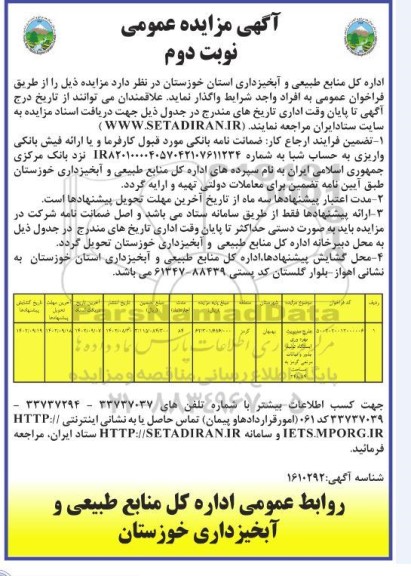 آگهی مزایده عمومی
نوبت دوم
اداره کل منابع طبیعی و آبخیزداری استان خوزستان در نظر دارد مزایده ذیل را از طریق
فراخوان عمومی به افراد واجد شرایط واگذار نماید. علاقمندان می توانند از تاریخ درج
آگهی تا پایان وقت اداری تاریخ های مندرج در جدول ذیل جهت دریافت اسناد مزایده به
سایت ستادایران مراجعه نمایند. (WWW.SETADIRAN.IR)
۱-تضمین فرایند ارجاع کار: ضمانت نامه بانکی مورد قبول کارفرما و یا ارائه فیش بانکی
واریزی به حساب شبا به شماره IR۸۲۰۱۰۰۰۰۴۰۵۷۰۴۲۱۰۷۶۱۱۲۳۴ نزد بانک مرکزی
جمهوری اسلامی ایران به نام سپرده های اداره کل منابع طبیعی و آبخیزداری خوزستان
طبق آیین نامه تضمین برای معاملات دولتی تهیه و ارایه گردد.
۲-مدت اعتبار پیشنهادها سه ماه از تاریخ آخرین مهلت تحویل پیشنهادها است.
۳-ارائه پیشنهادها فقط از طریق سامانه ستاد می باشد و اصل ضمانت نامه شرکت در
مزایده باید به صورت دستی حداکثر تا پایان وقت اداری تاریخ های مندرج در جدول ذیل
به محل دبیرخانه اداره کل منابع طبیعی و آبخیزداری خوزستان تحویل گردد.
۴-محل گشایش پیشنهادها، اداره کل منابع طبیعی و آبخیزداری استان خوزستان به
نشانی اهواز-بلوار گلستان کد پستی ۸۸۴۳۹-۶۱۳۴۷ می باشد.
ردیف
موضوع مزایده
شهرستان
منطقه
۱
بهبهان
جهت کسب اطلاعات بیشتر با شماره تلفن های ۳۳۷۳۷۰۳۷ - ۳۳۷۳۷۲۹۴ -
۳۳۷۳۷۰۳۹ کد ۰۶۱ (امور قراردادهاو پیمان) تماس حاصل یا به نشانی اینترنتی HTTP://
IETS.MPORG.IR و سامانه HTTP://SETADIRAN.IR ستاد ایران، مراجعه
فرمائید.
شناسه آگهی: ۱۶۱۰۲۹۲
روابط عمومی اداره کل منابع طبیعی و
آبخیزداری خوزستان